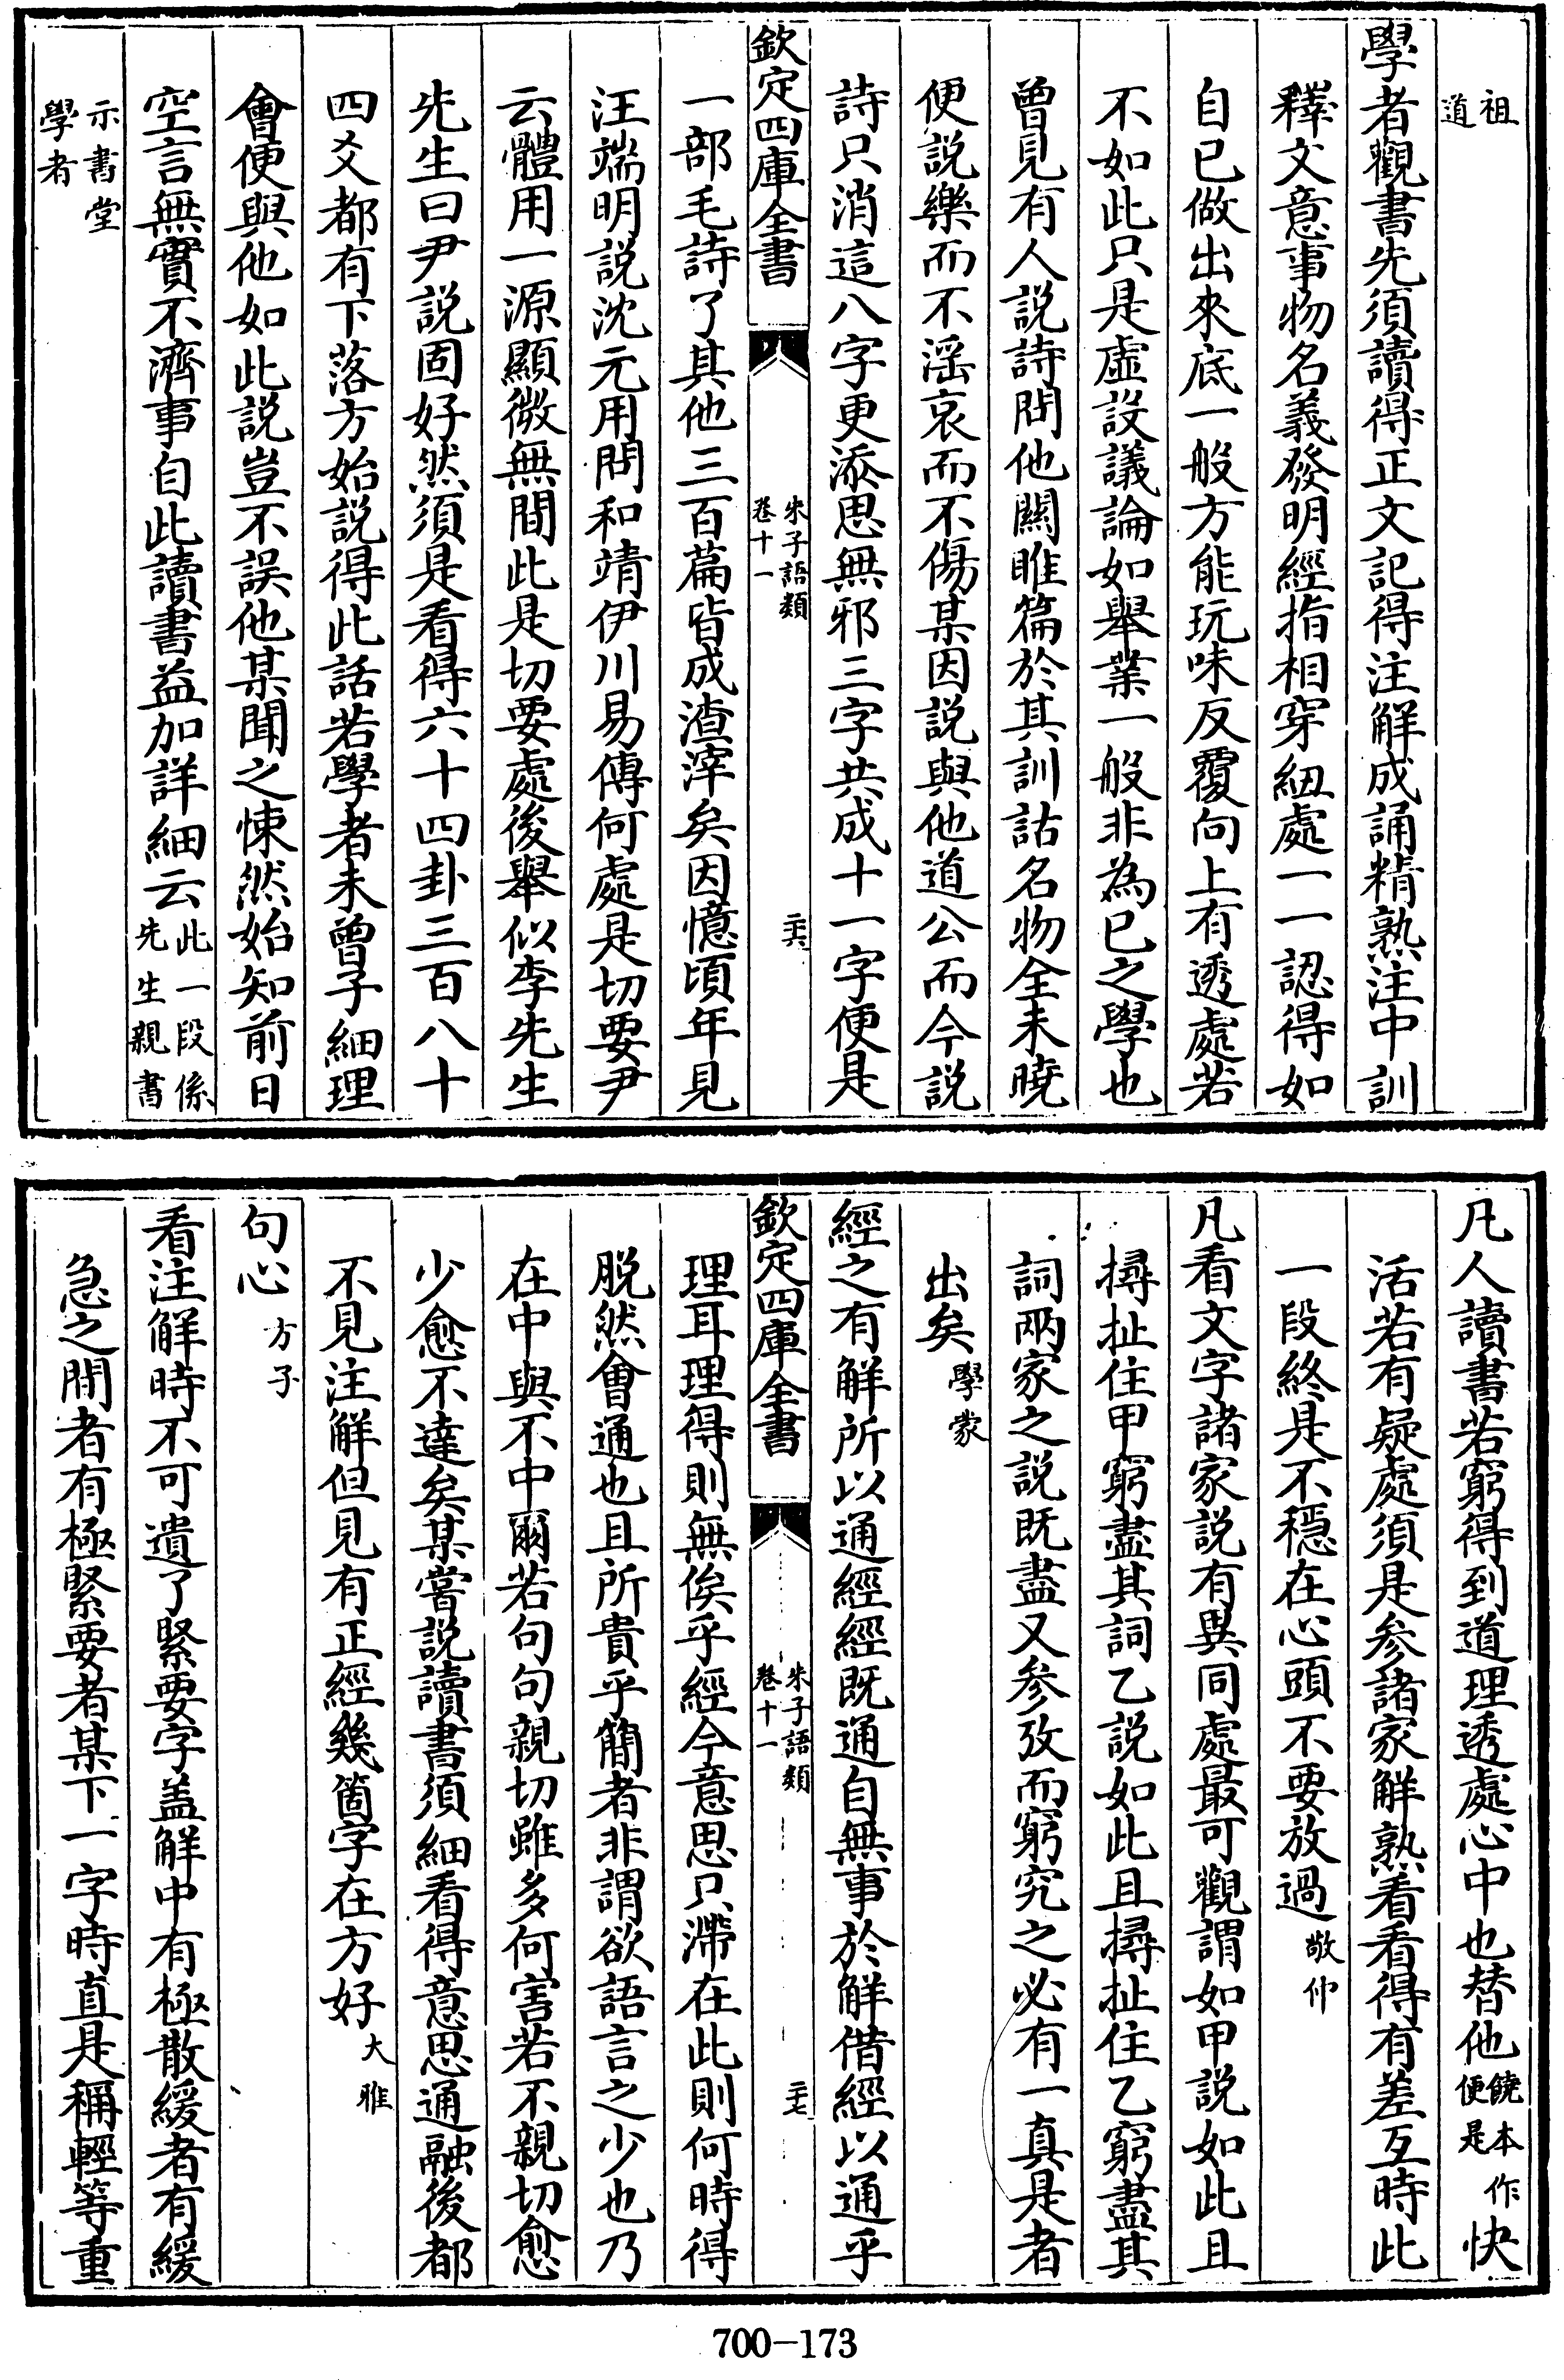 祖道
學者觀書先須讀得正文記得注解成誦精熟注中訓
釋文意事物名義發明經指相穿紐處一一認得如
自已做出來底一般方能玩味反覆向上有透處若
不如此只是虛設議論如舉業一般非為已之學也
曾見有人說詩問他關雎篇於其訓詁名物全未曉
便說樂而不淫哀而不傷某因說與他道公而今說
詩只消這八字更添思無邪三字共成十一字便是
欽定四庫全書 朱子語類卷十一 二六
一部毛詩了其他三百篇皆成渣滓矣因憶頃年見
汪端明說沈元用問和靖伊川易傳何處是切要尹
云體用一源顯微無間此是切要處後舉似李先生
先生曰尹說固好然須是看得六十四卦三百八十
四爻都有下落方始說得此話若學者未曾子細理
會便與他如此說豈不誤他某聞之悚然始知前日
空言無實不濟事自此讀書益加詳細云此一段係先生親書
示書堂學者
凡人讀書若窮得到道理透處心中也替他饒本作便是快
活若有疑處須是參諸家解熟看看得有差互時此
一段終是不穩在心頭不要放過敬仲
凡看文字諸家說有異同處最可觀謂如甲說如此且
撏扯住甲窮盡其詞乙說如此且撏扯住乙窮盡其
詞兩家之說既盡又參攷而窮究之必有一真是者
出矣學蒙
經之有解所以通經經既通自無事於解借經以通乎
欽定四庫全書 朱子語類卷十一 二七
理耳理得則無俟乎經今意思只滯在此則何時得
脫然會通也且所貴乎簡者非謂欲語言之少也乃
在中與不中爾若句句親切雖多何害若不親切愈
少愈不達矣某嘗說讀書須細看得意思通融後都
不見注解但見有正經幾箇字在方好大雅
句心方子
看注解時不可遺了緊要字盖解中有極散緩者有緩
急之間者有極緊要者某下一字時直是稱輕等重
700-173